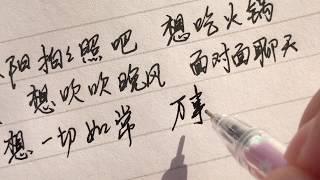 阳拍拍照吧 想吃火锅
想吹吹晚风 面对面聊天
想一切如常 万事